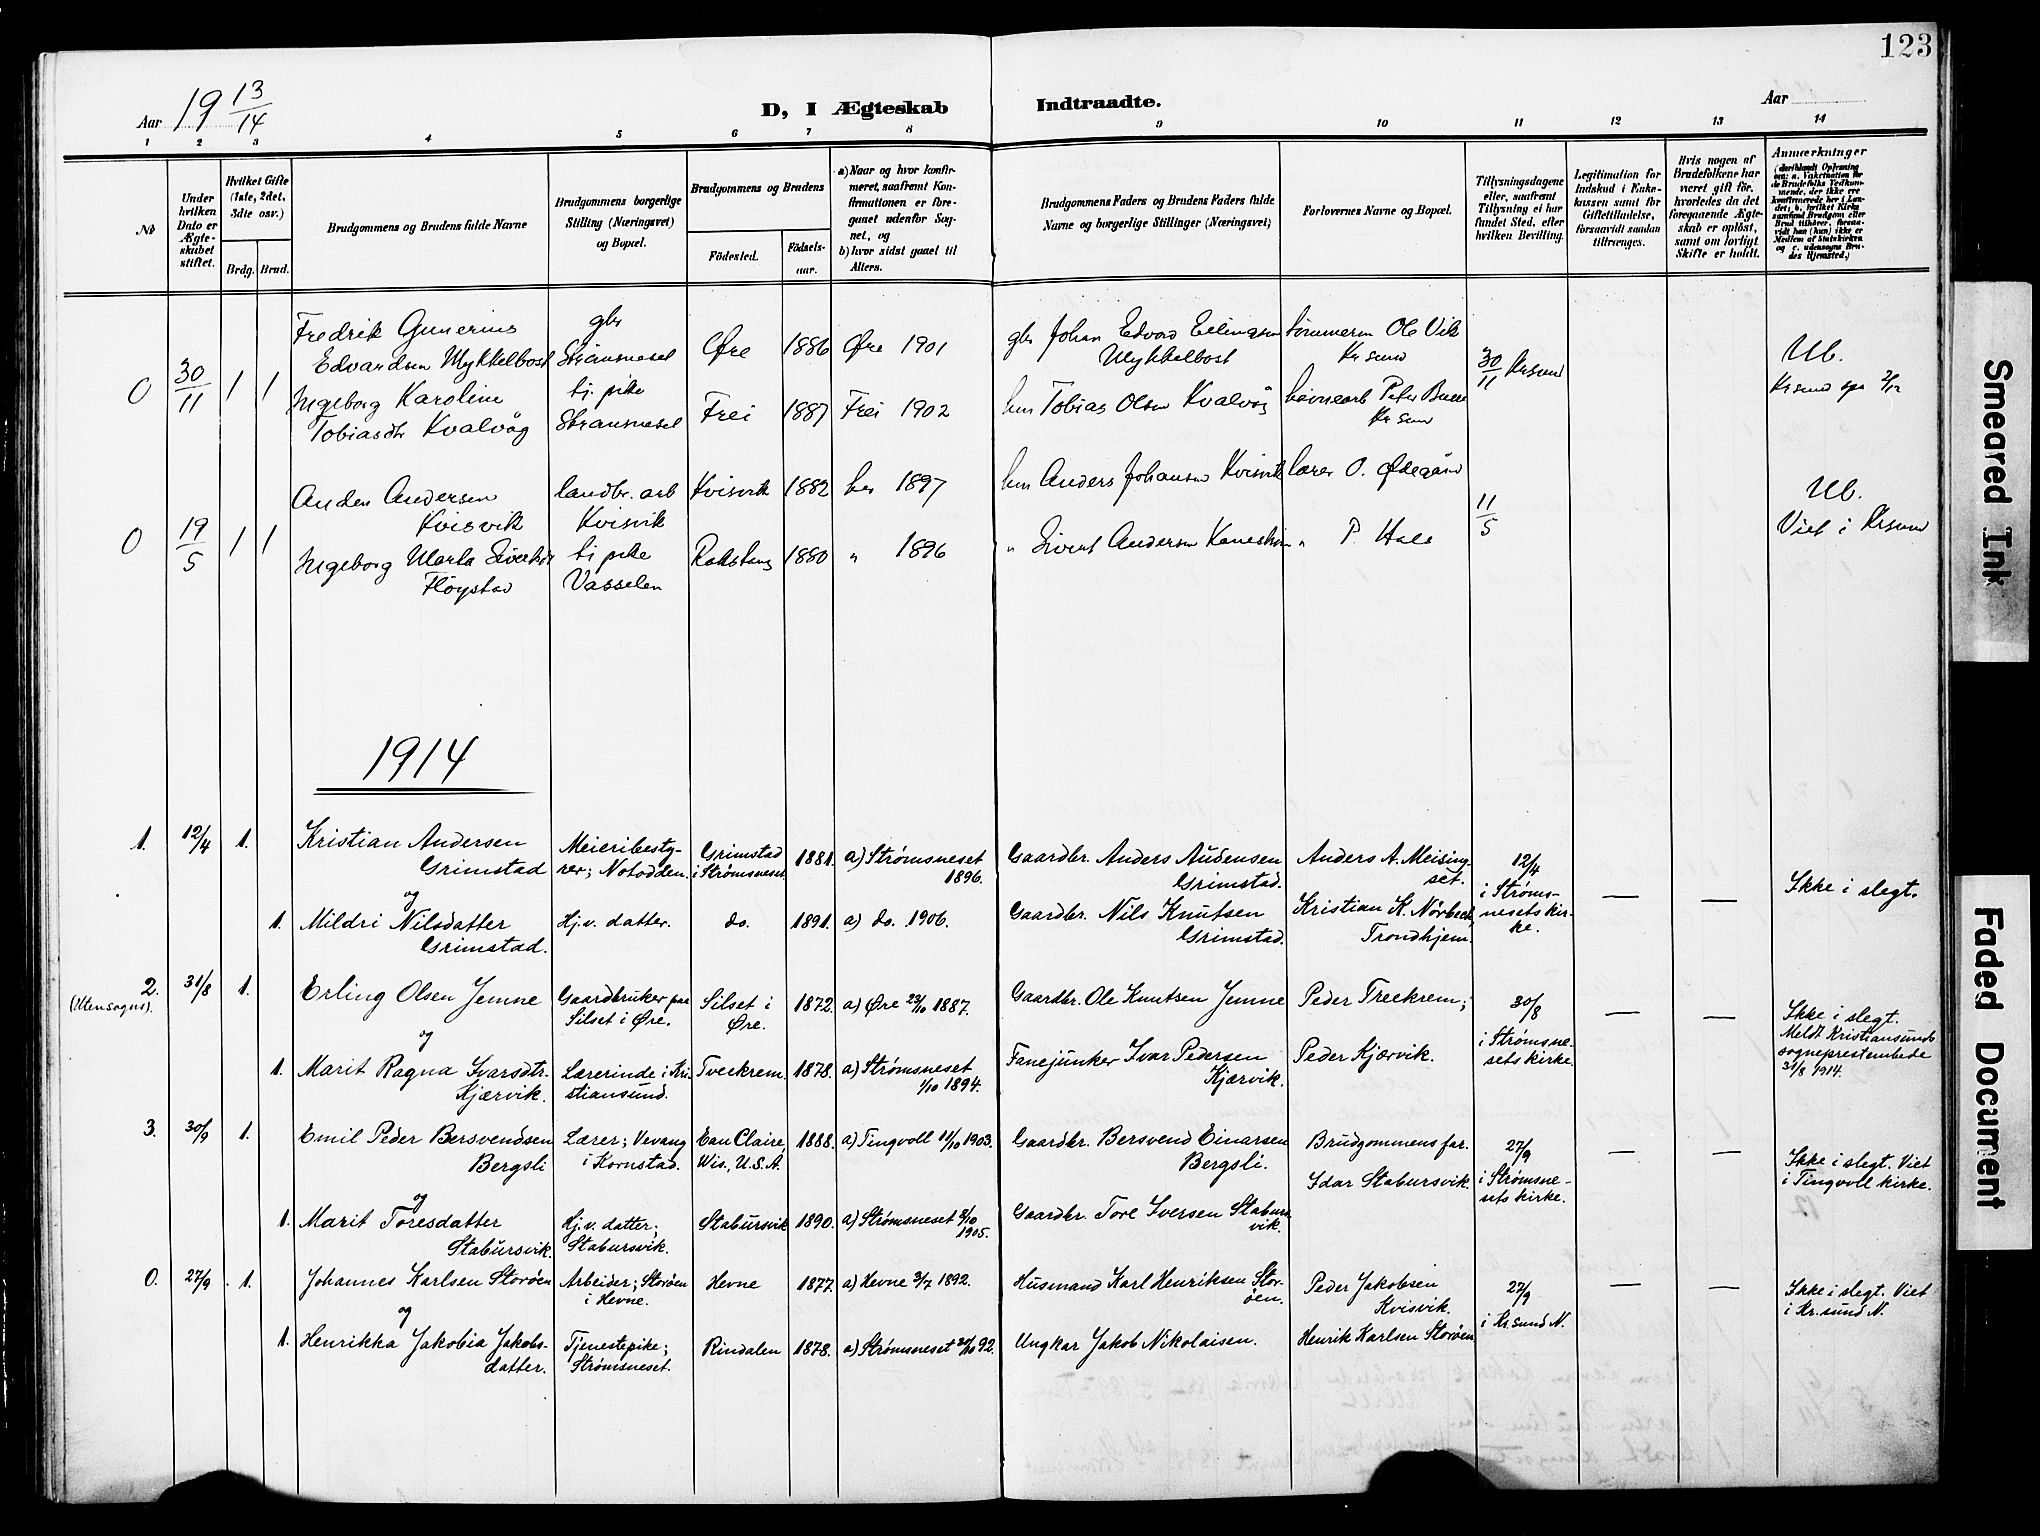 123
Aar 19 13/14
D, I Ægteskab Indtraadte.
Aar
1 2 3 4 5 6 7 8 9 10 11 12 13 14
No
Under hvilken Dato er Ægteskabet stiftet.
Hvilket Gifte (1ste, 2det, 3die osv.)
Brdg. Brud.
Brudgommens og Brudens fulde Navne
Brudgommens borgerlige Stilling (Næringsvei) og Bopæl.
Brudgommens og Brudens
Fødested.
Fødselsaar.
a) Naar og hvor konfirmeret, saafremt Konfirmationen er foregaaet udenfor Sognet, og
b) hvor sidst gaaet til Alters.
Brudgommens Faders og Brudens Faders fulde Navne og borgerlige Stillinger (Næringsvei)
Forlovernes Navne og Bopæl.
Tillysningsdagene eller, saafremt Tillysning ei har fundet Sted, efter hvilken Bevilling.
Legitimation for Indskud i Enkekassen samt for Giftetilladelse, forsaavidt saadan tiltrænges.
Hvis nogen af Brudefolkene har været gift før, hvorledes da det foregaaende Ægteskab er opløst, samt om lovligt Skifte er holdt.
Anmærkninger
0 30/11 1 1
Fredrik Gunerius Edvardsen Mykkelbost
gbr Strømsneset
Øre 1886 Øre 1901
gbr Johan Edvard Ellingsen Mykkelbost
tømmerm Ole Vik Kr sund
30/11 Krsund
Ub.
Ingeborg Karoline Tobiasdtr Kvalvåg
tj. pike Strømsneset
Frei 1887 Frei 1902
hm Tobias Olsen Kvalvåg
Peter Kr sund
Krsund 2/12
0 19/5 1 1
Anders Andersen Kvisvik
landbr. arb Kvisvik
Kvisvik 1882 her 1897
hm Anders Johansen Kvisvik
lærer O. Ødegård
11/5
Ub.
Viet i Krsund
Ingeborg Marta Sivertsdtr Fløystad
tj pike Vasselen
1880 " 1896
" Sivert Andersen
" P. Hals
1914
1. 12/4 1.
Kristian Andersen Grimstad
og
Meieribestyrer; Notodden.
Grimstad i Strømsneset 1881. a) Strømsneset 1896.
Gaardbr. Anders Audensen Grimstad.
Anders A. Meisingset.
12/4 i Strømsnesets kirke.
— —
Ikke i slegt.
1. Mildri Nilsdatter Grimstad.
Hj.v. datter. do. 1891. a) do. 1906.
Gaardbr. Nils Knutsen Grimstad.
Kristian K. Nørbeck, Trondhjem.
2. (Utensogns). 31/8 1.
Erling Olsen Jemne
og
Gaardbruker paa Silset i Øre.
Silset i Øre. 1872. a) Øre 23/10 1887.
Gaardbr. Ole Knutsen Jemne
Peder Treekrem;
30/8 i Strømsnesets kirke.
— —
Ikke i slegt. Meldt Kristiansunds sogneprestembede 31/8 1914.
1. Marit Ragna Ivarsdtr. Kjærvik.
Lærerinde i Kristiansund.
Tveekrem. 1878. a) Strømsneset 1/10 1894.
Fanejunker Ivar Pedersen Kjærvik.
Peder Kjærvik.
3. 30/9 1.
Emil Peder Bersvendsen Bergsli
og
Lærer; Vevang i Kornstad.
Eau Claire, Wis., U.S.A. 1888. a) Tingvoll 11/10 1903.
Gaardbr. Bersvend Einarsen Bergsli.
Brudgommens far.
27/9 i Strømsnesets kirke.
— —
Ikke i slegt. Viet i Tingvoll kirke.
1. Marit Toresdatter Stabursvik.
Hj.v. datter; Stabursvik.
Stabursvik 1890. a) Strømsneset 8/10 1905.
Gaardbr. Tore Iversen Stabursvik.
Idar Stabursvik.
0. 27/9 1.
Johannes Karlsen Storøen
og
Arbeider; Storøen i Hevne.
Hevne 1877. a) Hevne 3/7 1892.
Husmand Karl Henriksen Storøen.
Peder Jakobsen Kvisvik.
27/9 i Kr.sund N.
— —
Ikke i slegt. Viet i Kr.sund N.
1. Henrikka Jakobia Jakobsdatter.
Tjenestepike; Strømsneset.
Rindalen 1878. a) Strømsneset 30/10 92.
Ungkar Jakob Nikolaisen.
Henrik Karlsen Storøen
Smeared Ink
Faded Document